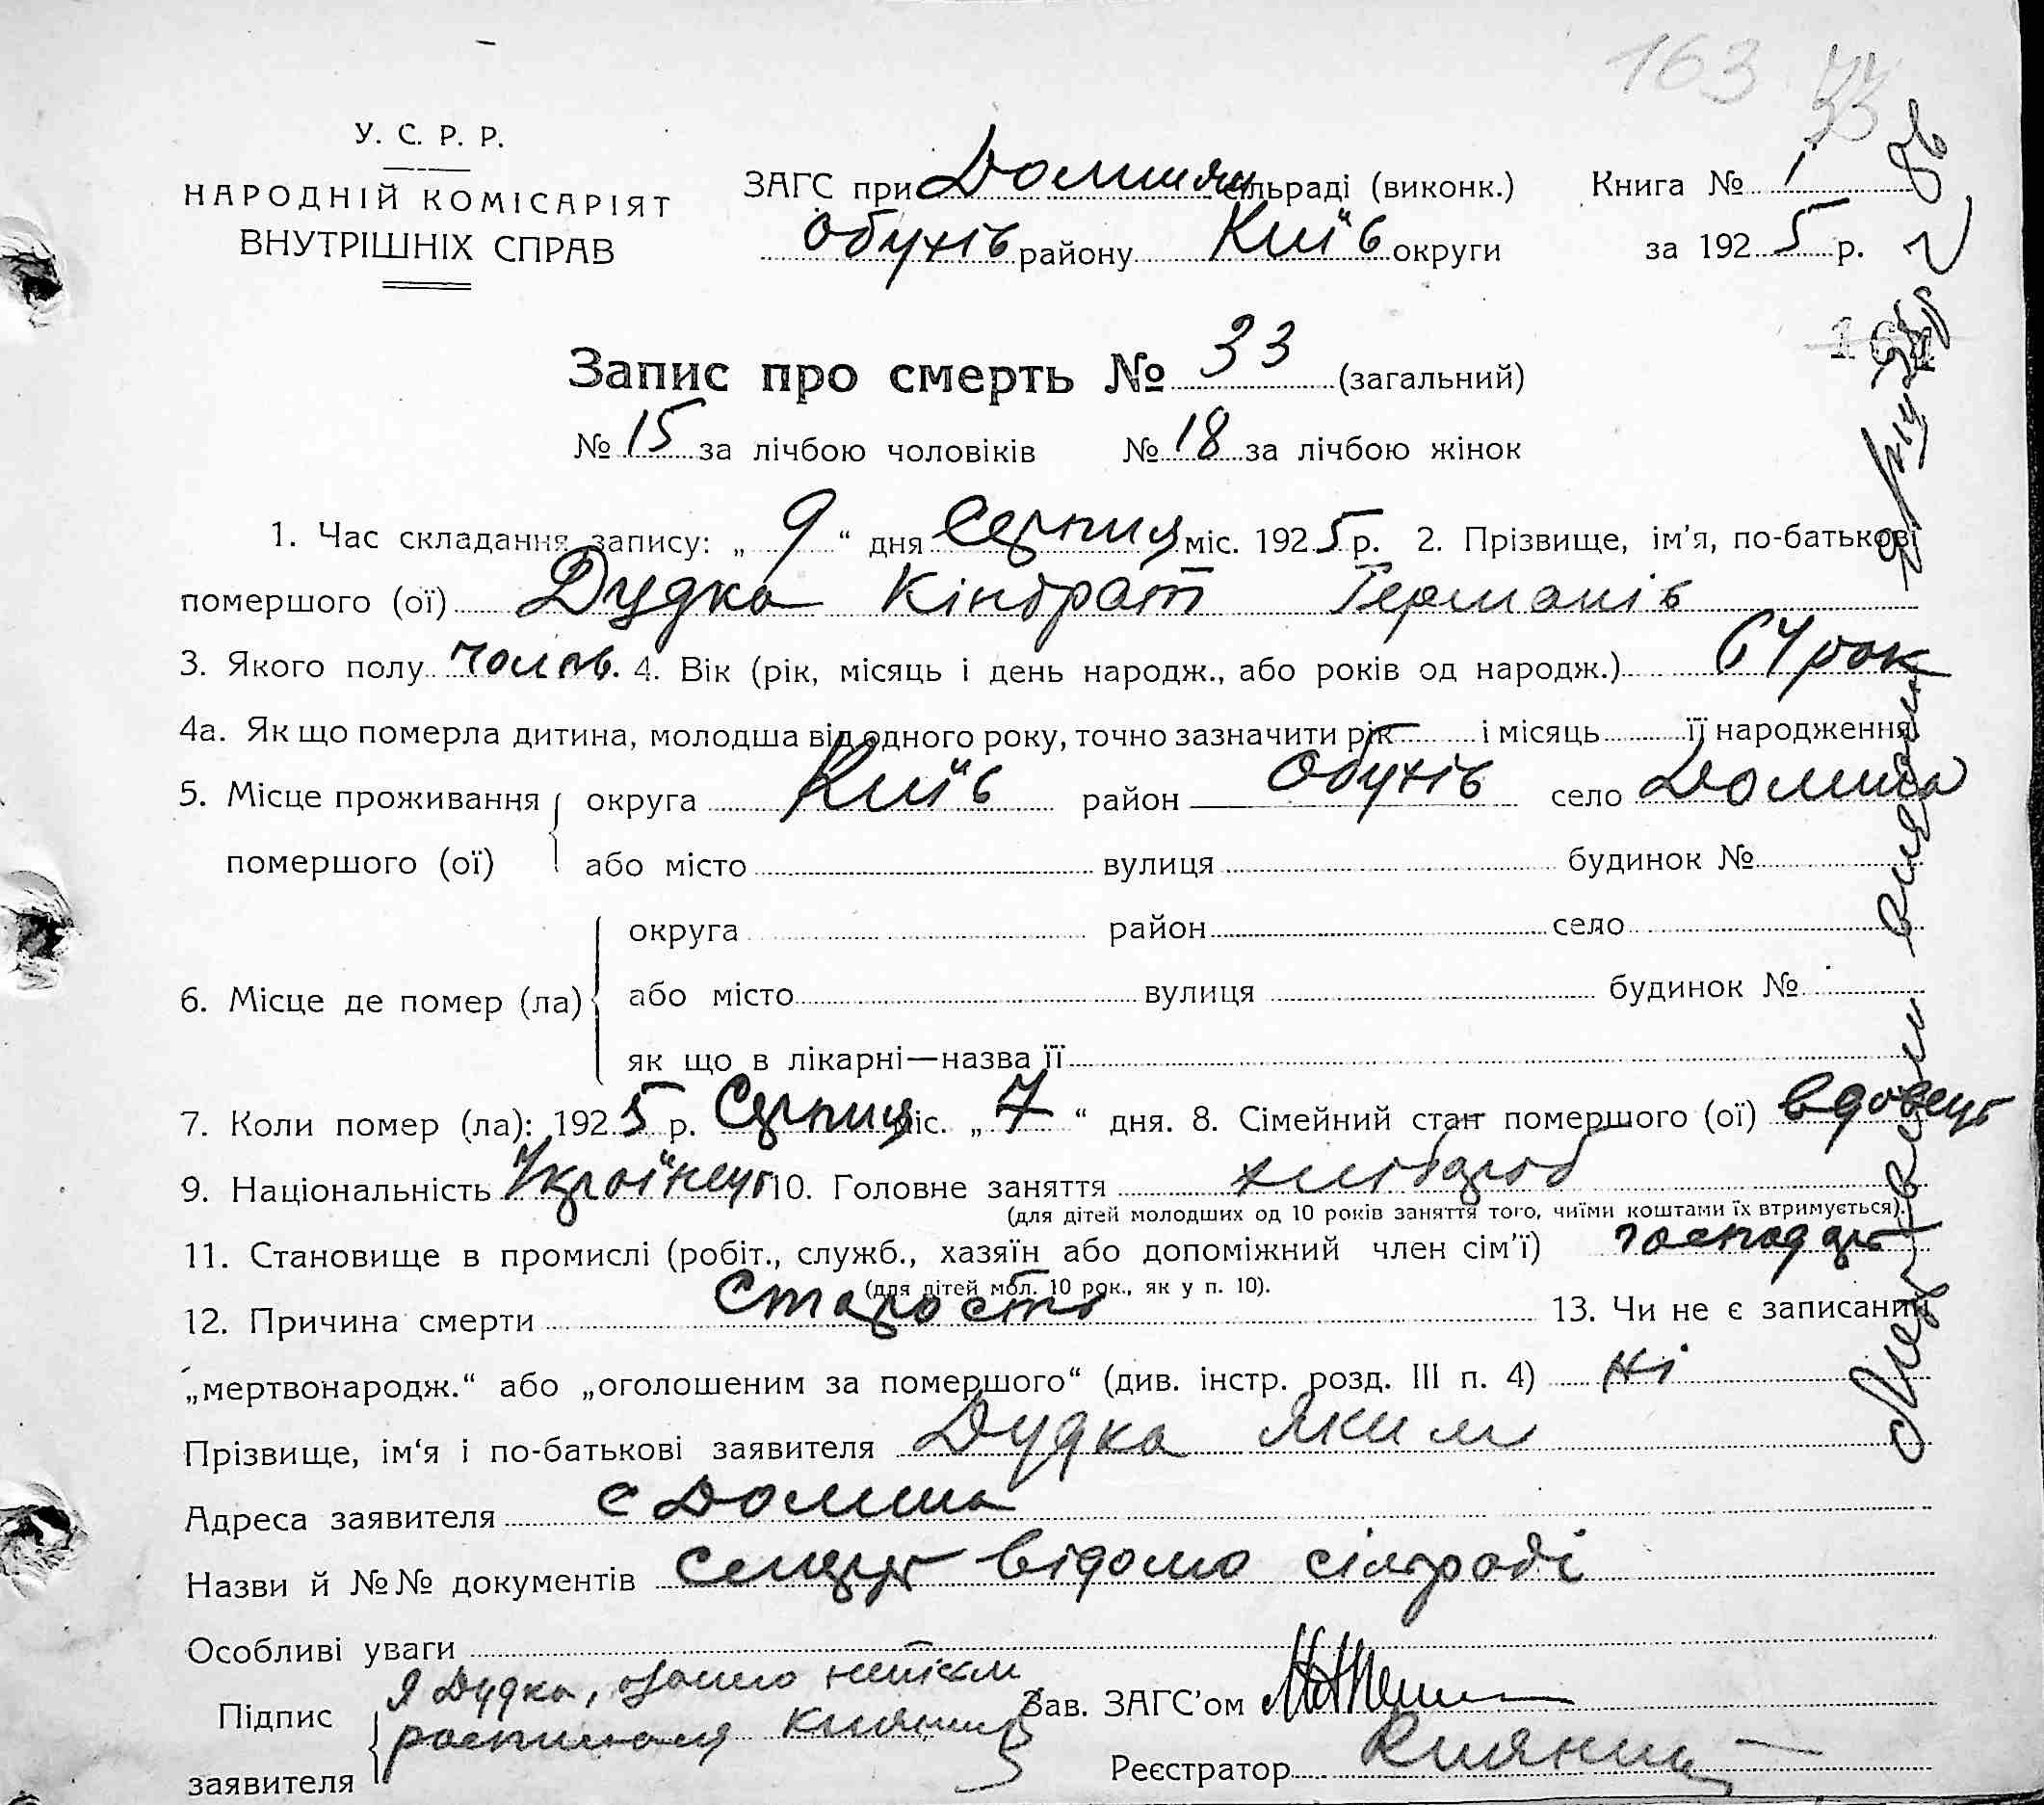 163 33
У. С. Р. Р.
НАРОДНІЙ КОМІСАРІЯТ
ВНУТРІШНІХ СПРАВ
ЗАГС при Долинян сільраді (виконк.)
Обухів району Київ округи
Книга № 1
за 1925 р.
Запис про смерть № 33 (загальний)
№ 15 за лічбою чоловіків № 18 за лічбою жінок
1. Час складання запису: „ 9 “ дня Серпня міс. 1925 р. 2. Прізвище, ім’я, по-батькові
помершого (ої) Дудка Кіндрат Германів
3. Якого полу чолов. 4. Вік (рік, місяць і день народж., або років од народж.) 64 рок
4а. Як що померла дитина, молодша від одного року, точно зазначити рік і місяць її народження
5. Місце проживання округа Київ район Обухів село Долина
помершого (ої) або місто вулиця будинок №
округа район село
6. Місце де помер (ла) або місто вулиця будинок №
як що в лікарні—назва її
7. Коли помер (ла): 1925 р. Серпня міс. „ 7 “ дня. 8. Сімейний стан помершого (ої) вдовець
9. Національність Українець 10. Головне заняття хлібороб
(для дітей молодших од 10 років заняття того, чиїми коштами їх втримується).
11. Становище в промислі (робіт., служб., хазяїн або допоміжний член сім’ї) господар
(для дітей мол. 10 рок., як у п. 10).
12. Причина смерти Старость 13. Чи не є записаний
„мертвонародж.“ або „оголошеним за помершого“ (див. інстр. розд. III п. 4) ні
Прізвище, ім‘я і по-батькові заявителя Дудка Яким
Адреса заявителя с Долина
Назви й №№ документів смерть відомо сільраді
Особливі уваги
Підпис Я Дудка,
заявителя
Зав. ЗАГС’ом
Реєстратор Кияниц